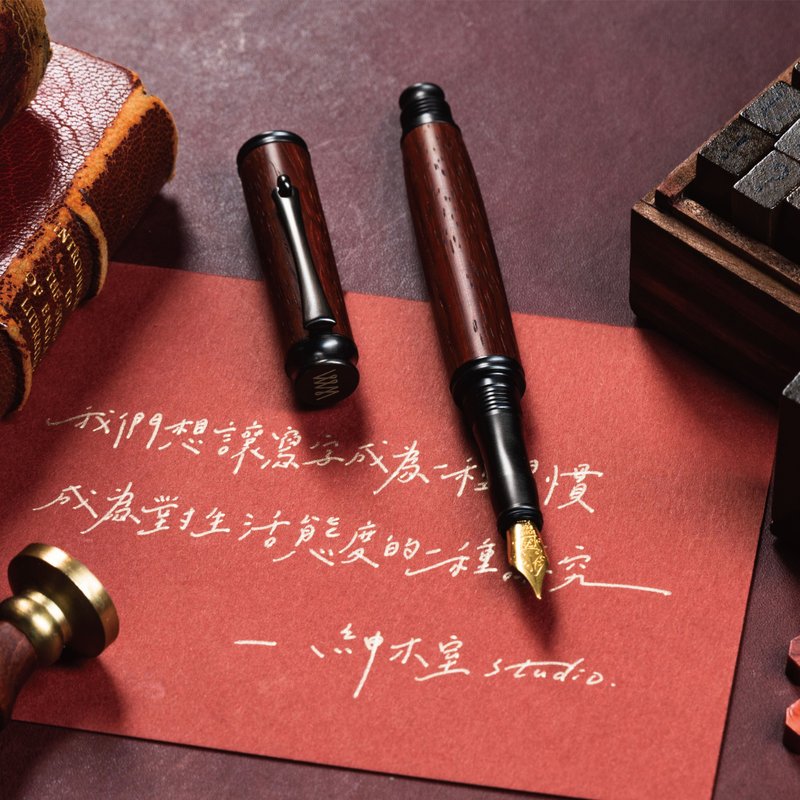 我們想讓寫字成為一種習慣
成為對生活態度的一種究
— 紳木室 studio.